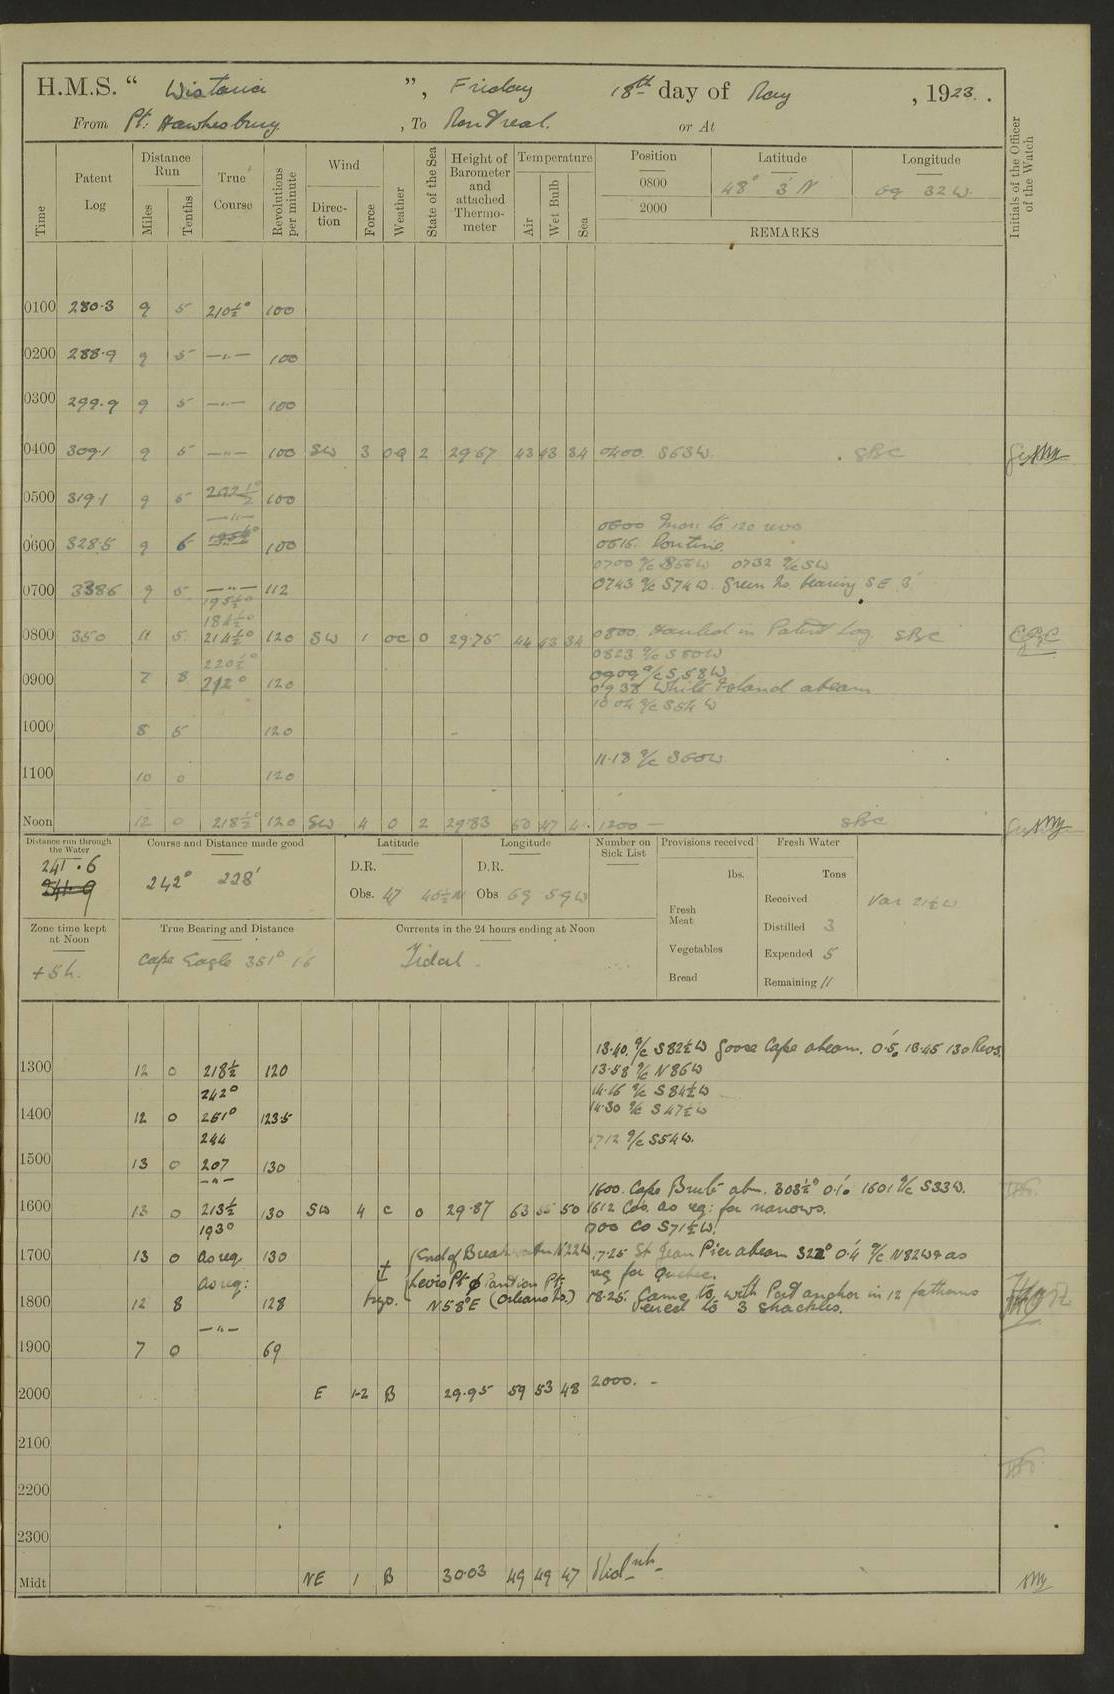 H.M.S. “ Wistaria ”, Friday 18th day of May, 1923.
From Pt: Hawkesbury, To Montreal. or At
Initials of the Officer of the Watch
Time
Patent Log
Distance Run
Miles
Tenths
True Course
Revolutions per minute
Wind
Direction
Force
Weather
State of the Sea
Height of Barometer and attached Thermometer
Temperature
Air
Wet Bulb
Sea
Position Latitude Longitude
0800 48° 3' N 69 32 W
2000
REMARKS
0100 280.3 9 5 210½° 100
0200 288.9 9 5 —"— 100
0300 299.9 9 5 —"— 100
0400 309.1 9 5 —"— 100 SW 3 2 29.67 43 43 34 0400 S63W. SBC
0500 319.1 9 5 100
—"—
0600 328.5 9 100
0600 to 120 revs
0615. Routine.
0700 a/c S66W 0732 a/c SW
0700 338.6 9 5 —"— 112 0743 a/c S74W. Green Is bearing SE 3'
195½°
184½°
0800 350 11 5 214½° 120 SW 1 oc 0 29.75 44 43 34 0800. Hauled in Patent Log. SBC
0823 a/c S80W
220½°
0909 a/c S58W
0900 7 8 212° 120 0938 White Island abeam
1004 a/c S54W
1000 8 5 120
11.18 a/c S60W
1100 10 0 120
Noon 12 0 218½° 120 SW 4 0 2 29.83 47 1200 — SBC
Distance run through the Water
241.6
241.9
Course and Distance made good
242° 228'
Latitude
D.R.
Obs. 47
Longitude
D.R.
Obs. 69 59 W
Number on Sick List
Provisions received
lbs.
Fresh Meat
Vegetables
Bread
Fresh Water
Tons
Received
Distilled 3
Expended 5
Remaining 11
Var 21½ W
Zone time kept at Noon
+5h.
True Bearing and Distance
Cape Eagle 351° 16
Currents in the 24 hours ending at Noon
Tidal.
13.40. a/c S82½W Goose Cape abeam. 0'.5, 13.45 130 Revs.
1300 12 0 218½ 120 13.58 a/c N86W
242° 14.16 a/c S84½W
1400 12 0 261° 123.5 14.30 a/c S47½W
244 1712 a/c S54W.
1500 13 0 207 130
—"— 1600. Cape Brulé abm. 303½° 0'.1. 1601 a/c S33W.
1600 13 0 213½ 130 SW 4 c 0 29.87 63 50 1612 Cos. as req: for narrows.
193° 1700 Co S71½W.
1700 13 0 as req 130 (End of Breakwater N22W 17.25 St Jean Pier abeam 322° 0'.4 a/c N82W & as
as req: Levis Pt req for Quebec.
1800 12 8 128 N58°E (Orleans Is.) 18.25. Came to, with Port anchor in 12 fathoms
veered to 3 shackles.
—"—
1900 7 0 69
2000 E 1-2 B 29.95 59 53 48 2000. –
2100
2200
2300
Midt NE 1 B 30.03 49 49 47 Midnt–